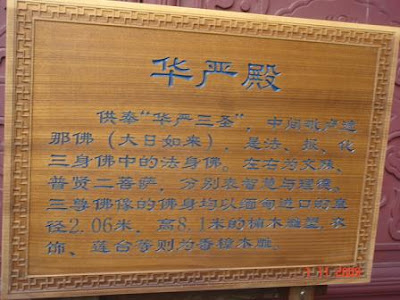 华严殿
供奉“华严三圣”，中间毗卢遮
那佛（大日如来），是法、报、化
三身佛中的法身佛。左右为文殊、
普贤二菩萨，分别表智慧与理德。
三尊佛像的佛身均以缅甸进口的直
径2.06米，高8.1米的楠木雕塑，衣
饰、莲台等则为香樟木雕。